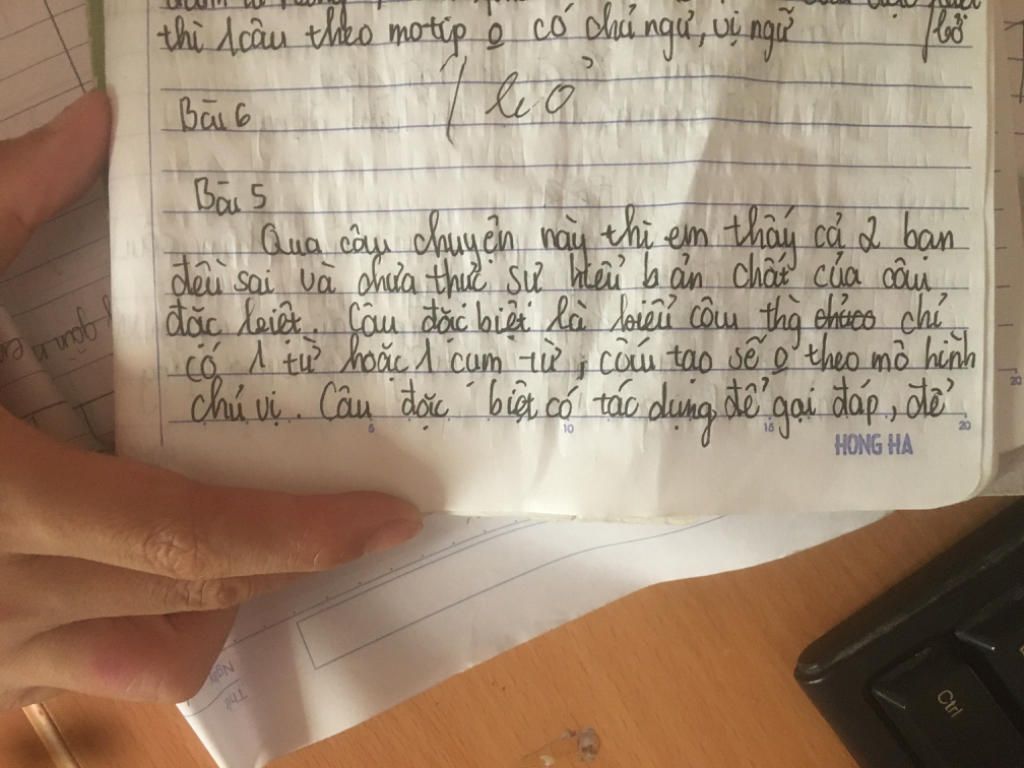 thì 1 câu theo motip o có chủ ngữ, vị ngữ
Bài 6
Bài 5
Qua câu chuyện này thì em thấy cả 2 bạn
đều sai và chưa thực sự hiểu bản chất của câu
đặc biệt. Câu đặc biệt là kiểu câu thg chỉ
có 1 từ hoặc 1 cụm từ, cấu tạo sẽ o theo mô hình
chủ vị. Câu đặc biệt có tác dụng để gọi đáp, để
5 10 15 20
HONG HA
20
Thứ
Ngày
Ctrl